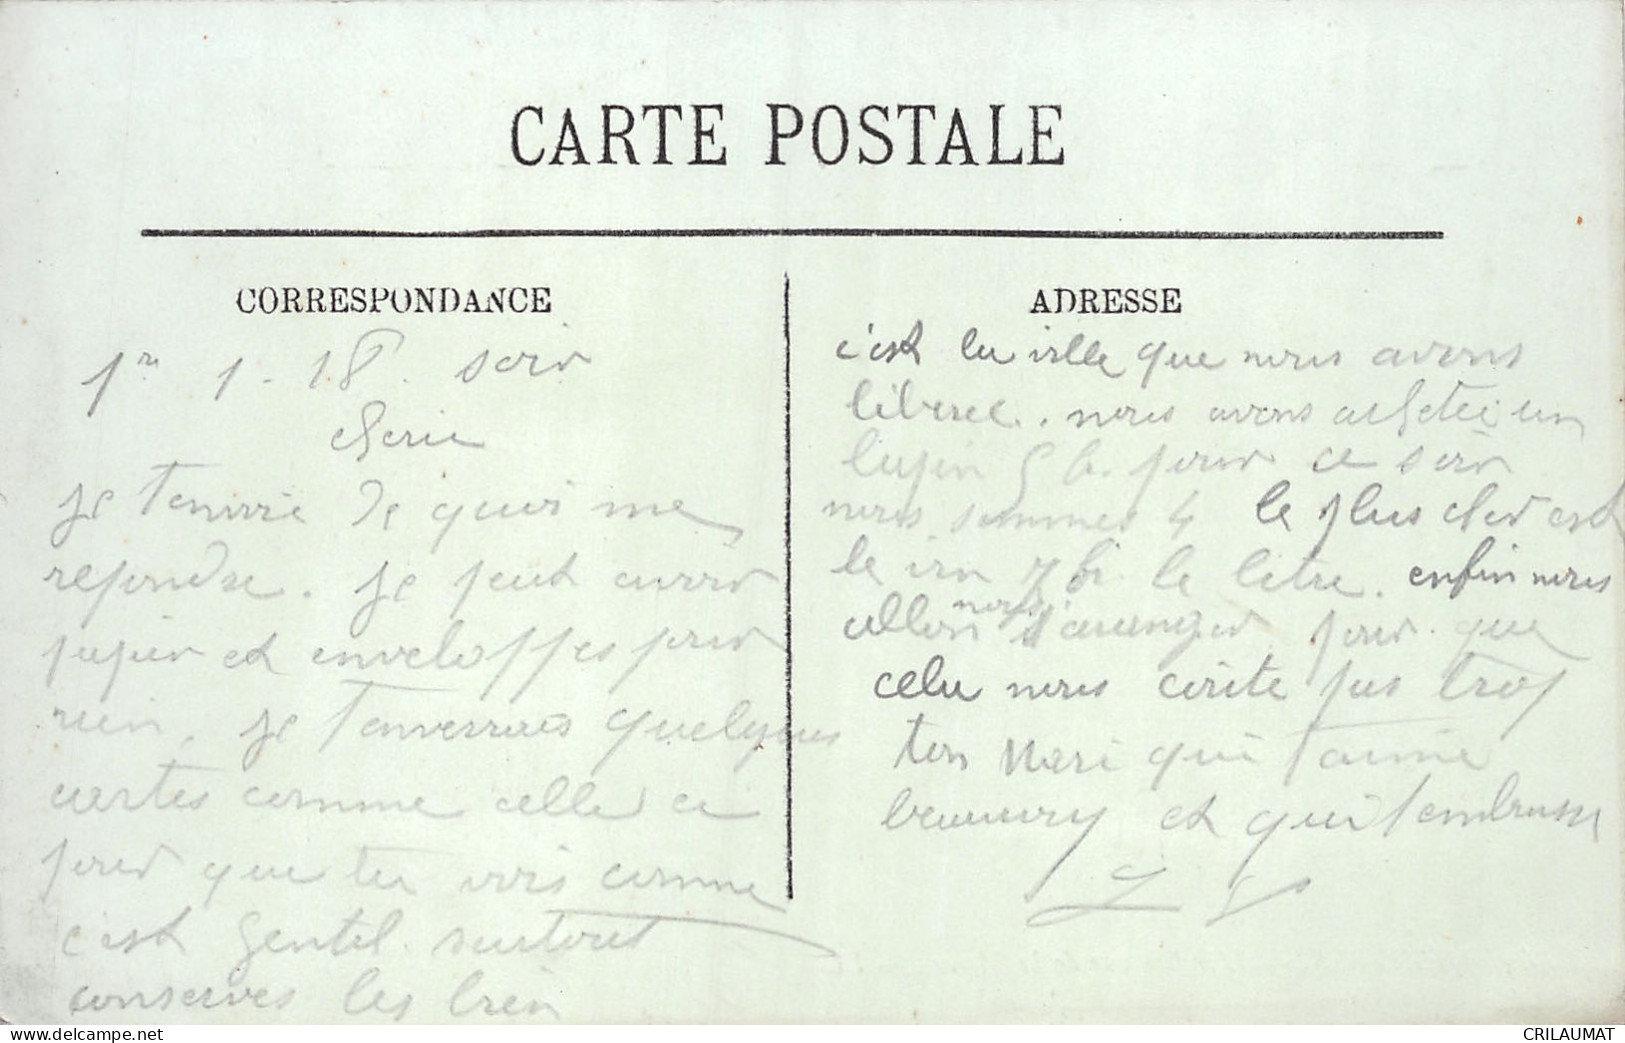 CARTE POSTALE
CORRESPONDANCE
1er 1 - 18. soir
cherie
je tenvoie de quoi me
repondre. je peut avoir
papier et enveloppes pour
rien. je tenverrais quelques
cartes comme celle ci
pour que tu vois comme
c'est gentil. surtout
conserves les bien
ADRESSE
c'est la ville que nous avons
liberee. nous avons achetee un
lapin 5 f. pour ce soir
nous sommes 4 le plus cher est
le vin le litre. enfin nous
allon nous arranger pour que
cela nous coute pas trop
ton Mari qui t'aime
beaucoup et qui t'embrasse
www.delcampe.net
CRILAUMAT